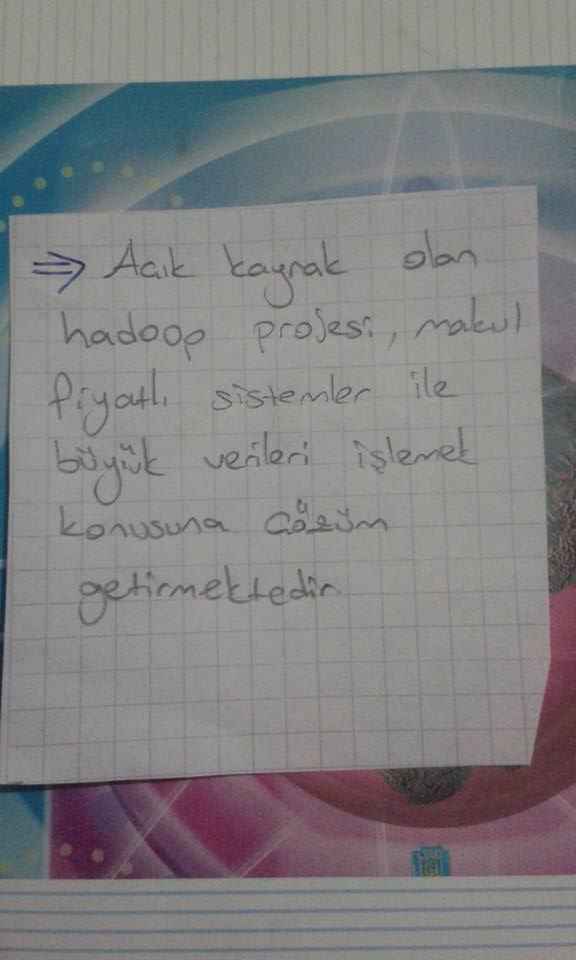 ⇒ Acık kaynak olan
hadoop projesi, makul
fiyatlı sistemler ile
büyük verileri işlemek
konusuna çözüm
getirmektedir.